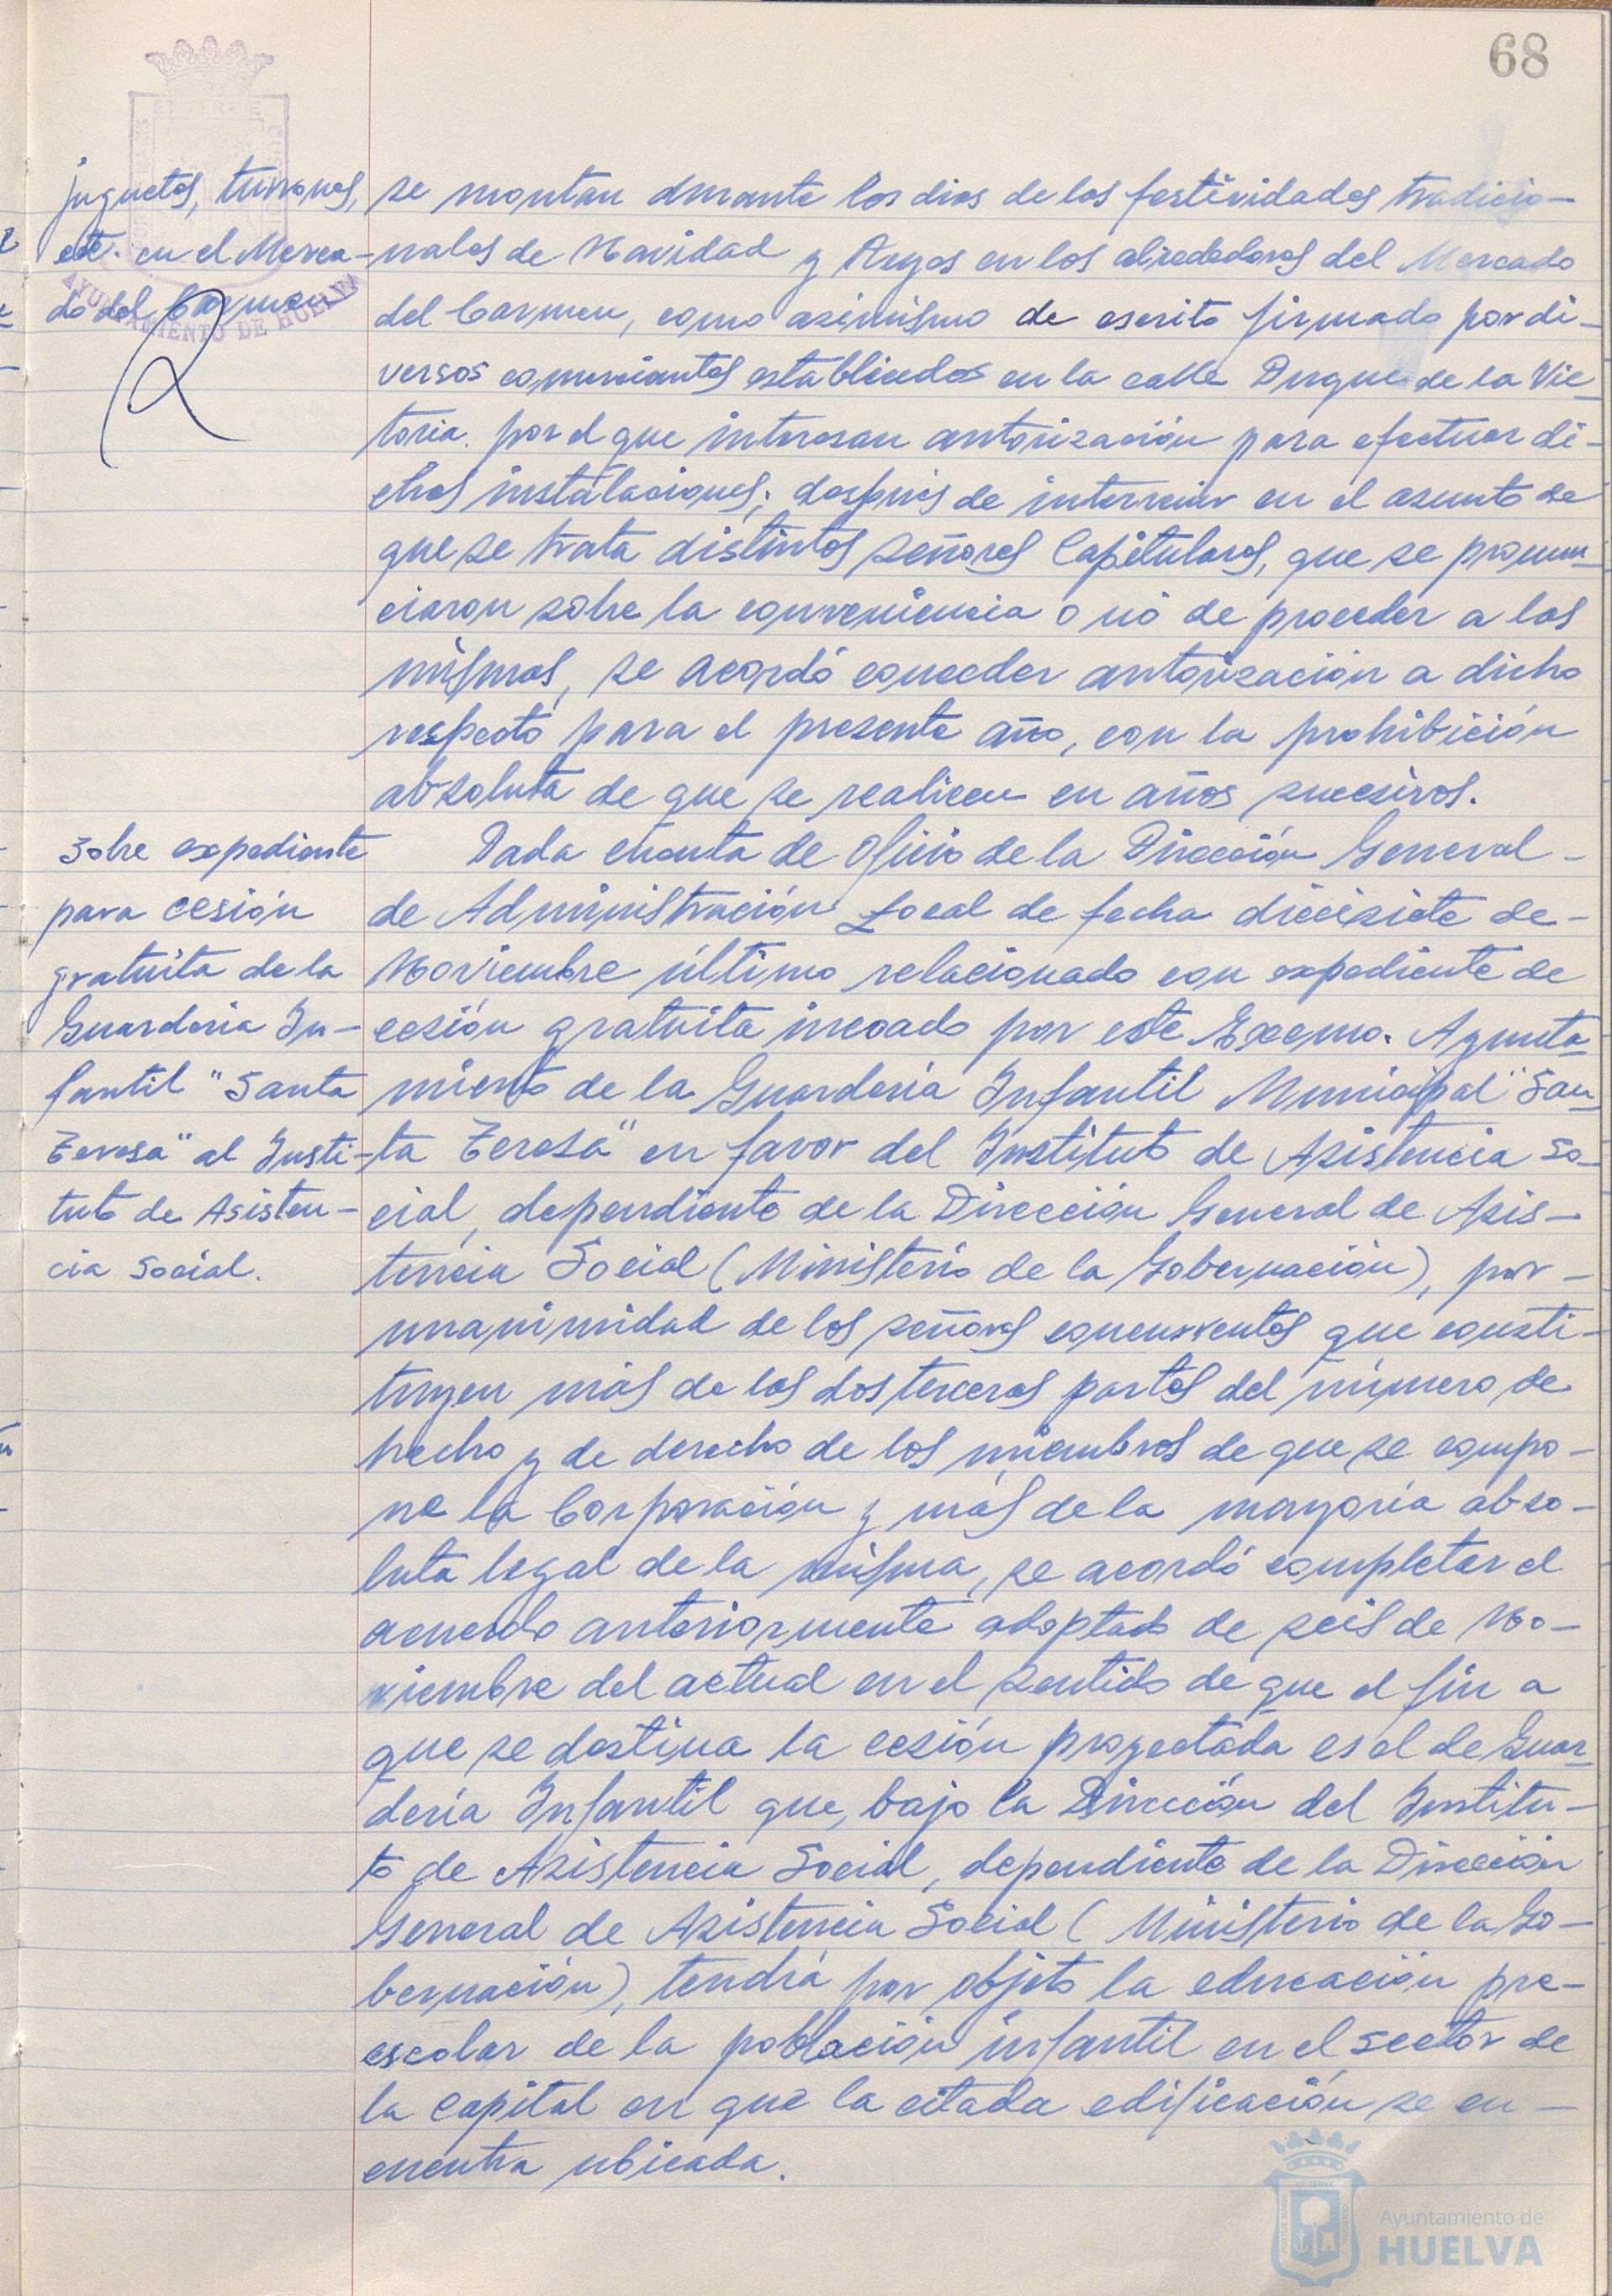 68
juguetes, turrones,
etc. en el Merca-
do del Carmen
se montan durante los dias de las festividades tradicio-
nales de Navidad y Reyes en los alrededores del Mercado
del Carmen, como asimismo de escrito firmado por di-
versos comerciantes establecidos en la calle Duque de la Vic-
toria. por el que interesan autorización para efectuar di-
chas instalaciones; después de intervenir en el asunto de
que se trata distintos señores Capitulares, que se pronun-
ciaron sobre la conveniencia o no de proceder a las
mismas, se acordó conceder autorización a dicho
respecto para el presente año, con la prohibición
absoluta de que se realicen en años sucesivos.
Sobre expediente
para cesión
gratuita de la
Guardería In-
fantil "Santa
Teresa" al Insti-
tuto de Asisten-
cia Social.
Dada cuenta de Oficio de la Dirección General -
de Administración Local de fecha diecisiete de-
Noviembre último relacionado con expediente de
cesión gratuita incoado por este Excmo. Ayunta-
miento de la Guardería Infantil Municipal "San-
ta Teresa" en favor del Instituto de Asistencia So-
cial, dependiente de la Dirección General de Asis-
tencia Social (Ministerio de la Gobernación), por -
unanimidad de los señores concurrentes que consti-
tuyen más de las dos terceras partes del número de
hecho y de derecho de los miembros de que se compo-
ne la Corporación y más de la mayoría abso-
luta legal de la misma, se acordó completar el
acuerdo anteriormente adoptado de seis de No-
viembre del actual en el sentido de que el fin a
que se destina la cesión proyectada es el de Guar-
dería Infantil que, bajo la Dirección del Institu-
to de Asistencia Social, dependiente de la Dirección
General de Asistencia Social (Ministerio de la Go-
bernación), tendrá por objeto la educación pre-
escolar de la población infantil en el sector de
la capital en que la citada edificación se en-
cuentra ubicada.
AYUNTAMIENTO DE HUELVA
Ayuntamiento de
HUELVA